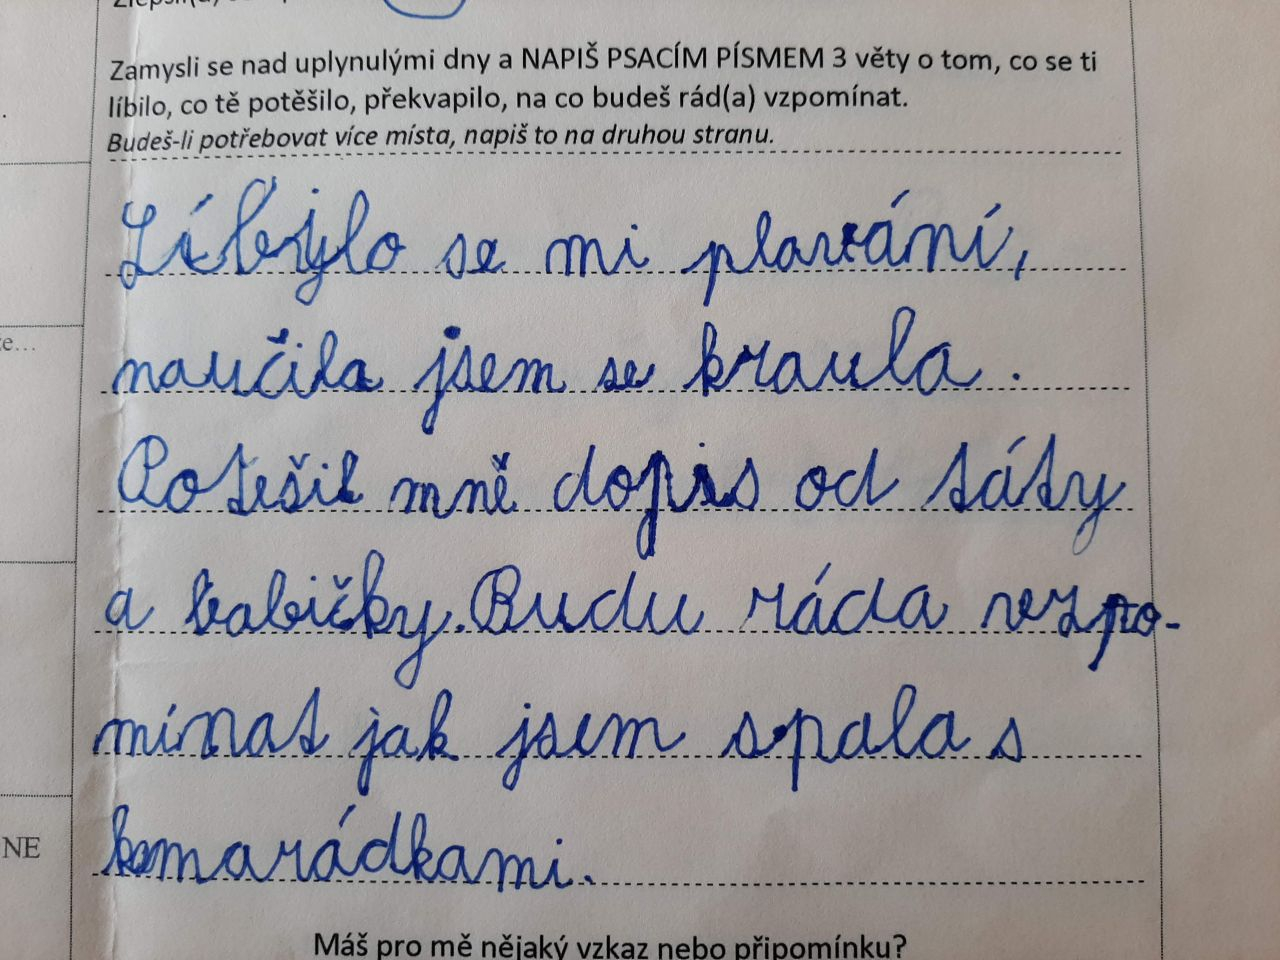 Zamysli se nad uplynulými dny a NAPIŠ PSACÍM PÍSMEM 3 věty o tom, co se ti
líbilo, co tě potěšilo, překvapilo, na co budeš rád(a) vzpomínat.
Budeš-li potřebovat více místa, napiš to na druhou stranu.
Líbylo se mi plavání,
naučila jsem se kraula.
Potešil mně dopis od táty
a babičky. Budu ráda vezpo-
mínat jak jsem spala s
NE
kamarádkami.
Máš pro mě nějaký vzkaz nebo připomínku?